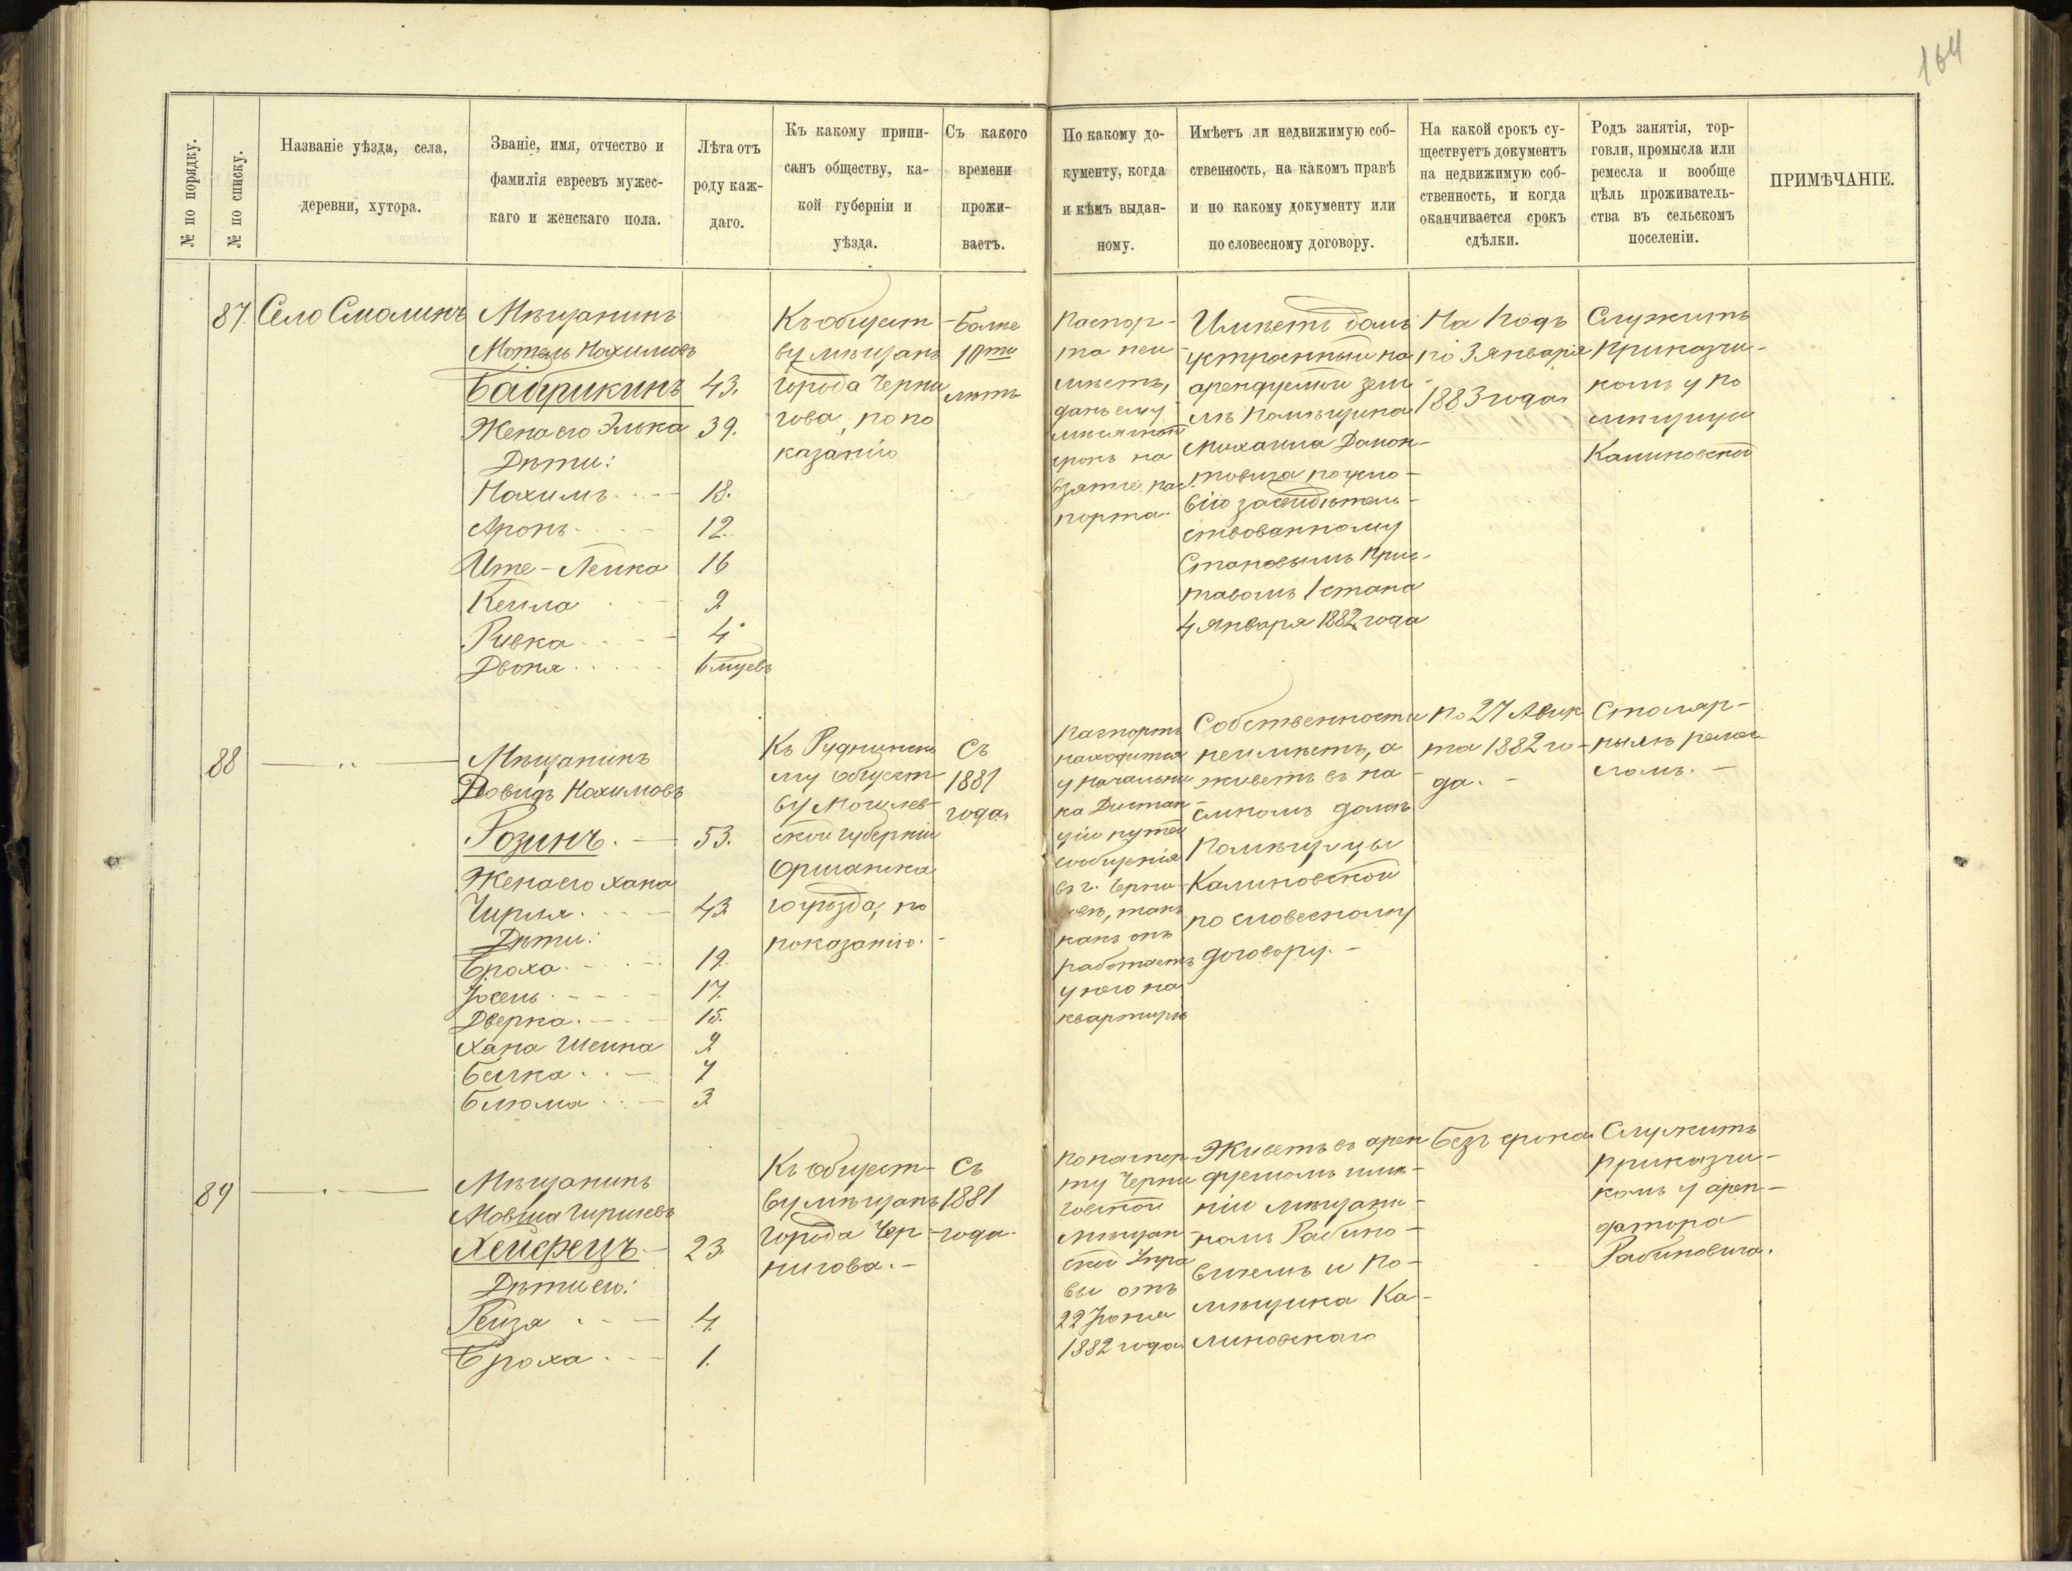 164
№ по порядку.
№ по списку.
Названіе уѣзда, села,
деревни, хутора.
Званіе, имя, отчество и
фамилія евреевъ мужес-
каго и женскаго пола.
Лѣта отъ
роду каж-
даго.
Къ какому припи-
санъ обществу, ка-
кой губерніи и
уѣзда.
Съ какого
времени
прожи-
ваетъ.
По какому до-
кументу, когда
и кѣмъ выдан-
ному.
Имѣетъ ли недвижимую соб-
ственность, на какомъ правѣ
и по какому документу или
по словесному договору.
На какой срокъ су-
ществуетъ документъ
на недвижимую соб-
ственность, и когда
оканчивается срокъ
сдѣлки.
Родъ занятія, тор-
говли, промысла или
ремесла и вообще
цѣль проживатель-
ства въ сельскомъ
поселеніи.
ПРИМѢЧАНІЕ.
87.
Село Смолинъ
Мѣщанинъ
Мотель Нохимовъ
Бабрикинъ 43.
Жена его Элька 39.
Дѣти:
Нохимъ 18.
Аронъ 12.
Ите-Лейка 16
Кейла 9
Ривка 4
Двоня 6 мѣсяцевъ
Къ общест-
ву мѣщанъ
города Черни
гова, по по
казанію
Болѣе
10ти
лѣтъ
Паспор-
та неи-
мѣетъ,
данъ ему
мѣсячный
срокъ на
взятіе пас-
порта.
Имѣетъ домъ
устроенный на
арендуемой зем-
лѣ Помѣщика
Михаила Домон-
товича по усло-
вію засвидѣтель-
ствованному
Становымъ При-
ставомъ 1 стана
4 Января 1882 года
На годъ
по 3 января
1883 года
Служитъ
Приказчи-
комъ у по
мѣщицы
Калиновской
88
Мѣщанинъ
Довидъ Нохимовъ
Розинъ. 53.
Жена его Хана
Чирля 43
Дѣти:
Броха 19.
Іосель 17.
Дверка 15.
Хана Шейна 9
Бейлка 7
Блюма 3
Къ Руднинско
му общест-
ву Могилев-
ской губерніи
Оршанска
го уѣзда, по
показанію.
Съ
1881
года
Паспортъ
находится
у начальни
ка Дистан-
ціи путей
сообщенія
въ г. Черни-
говѣ, такъ
какъ онъ
работаетъ
у него на
квартирѣ
Собственности
неимѣетъ, а
живетъ въ на-
емномъ домѣ
Помѣщицы
Калиновской
по словесному
договору.
По 27 Авгус
та 1882 го-
да.
Столяр-
нымъ ремес-
ломъ.
89
Мѣщанинъ
Мовша Гиршевъ
Хейфецъ 23.
Дѣти его:
Рейза 4.
Броха 1.
Къ общест-
ву мѣщанъ
города Чер-
нигова.
Съ
1881
года.
По паспор
ту Черни
говской
мѣщан-
ской Упра
вы отъ
22 Іюня
1882 года
Живетъ въ арен
дуемомъ имѣ-
ніи мѣщани-
номъ Рабино-
вичемъ и По-
мѣщика Ка-
линовскаго
Безъ срока
Служитъ
Приказчи-
комъ у арен-
датора
Рабиновича.